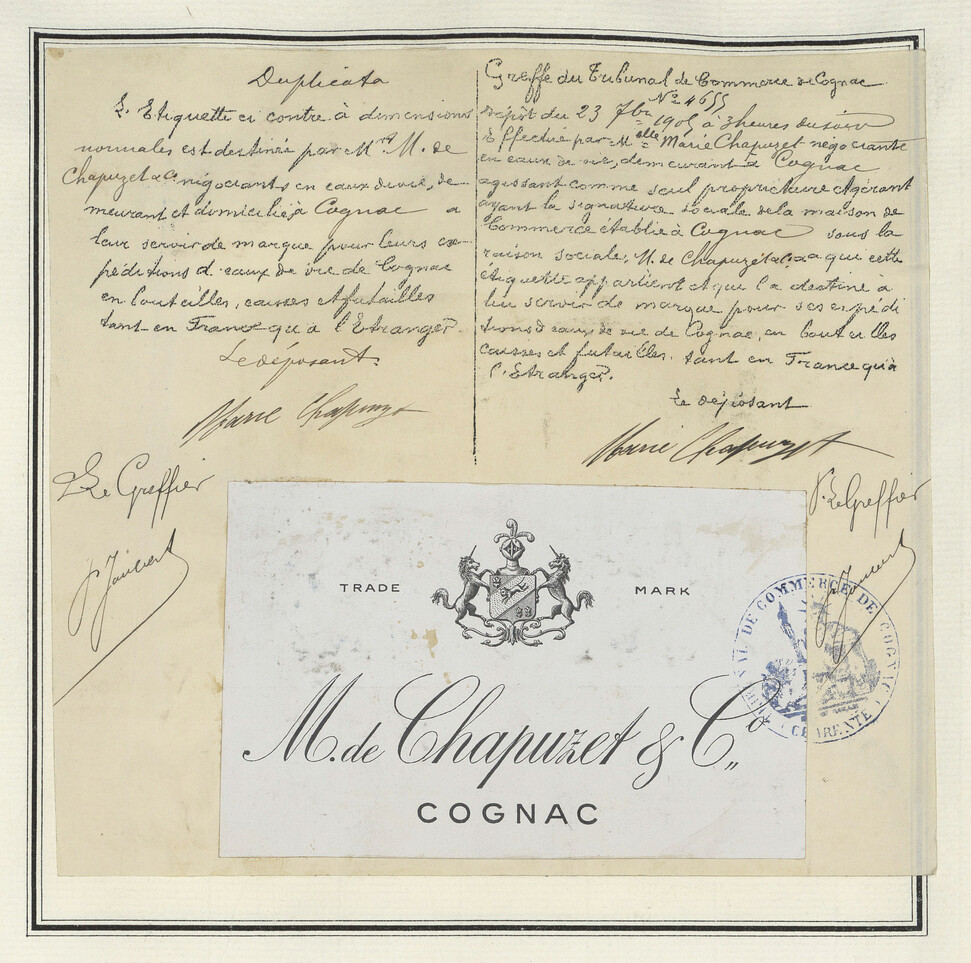 Duplicata
L'Etiquette ci contre à dimensions
normales est destinée par Mrs M. de
Chapuzet & Ce négociants en eaux de vie, de-
meurant et domiciliés à Cognac a
leur servir de marque pour leurs ex-
péditions d'eaux de vie de Cognac
en bouteilles, caisses et futailles
tant en France qu'à l'Etranger.
Le déposant
Marie Chapuzet
Le Greffier
Greffe du Tribunal de Commerce de Cognac
No 4655
Dépôt du 23 7bre 1905 à 3 heures du soir
Effectué par Melle Marie Chapuzet négociante
en eaux de vie, demeurant à Cognac
agissant comme seul propriétaire et gérant
ayant la signature sociale de la maison de
Commerce établie à Cognac sous la
raison sociale, M. de Chapuzet & Ce a qui cette
étiquette appartient et qui la destine a
lui servir de marque pour ses expédi
tions d'eaux de vie de Cognac, en bouteilles
caisses et futailles, tant en France qu'à
l'Etranger.
Le déposant
Marie Chapuzet
P. Le Greffier
TRADE MARK
M. de Chapuzet & Co
COGNAC
TRIBUNAL DE COMMERCE DE COGNAC
CHARENTE